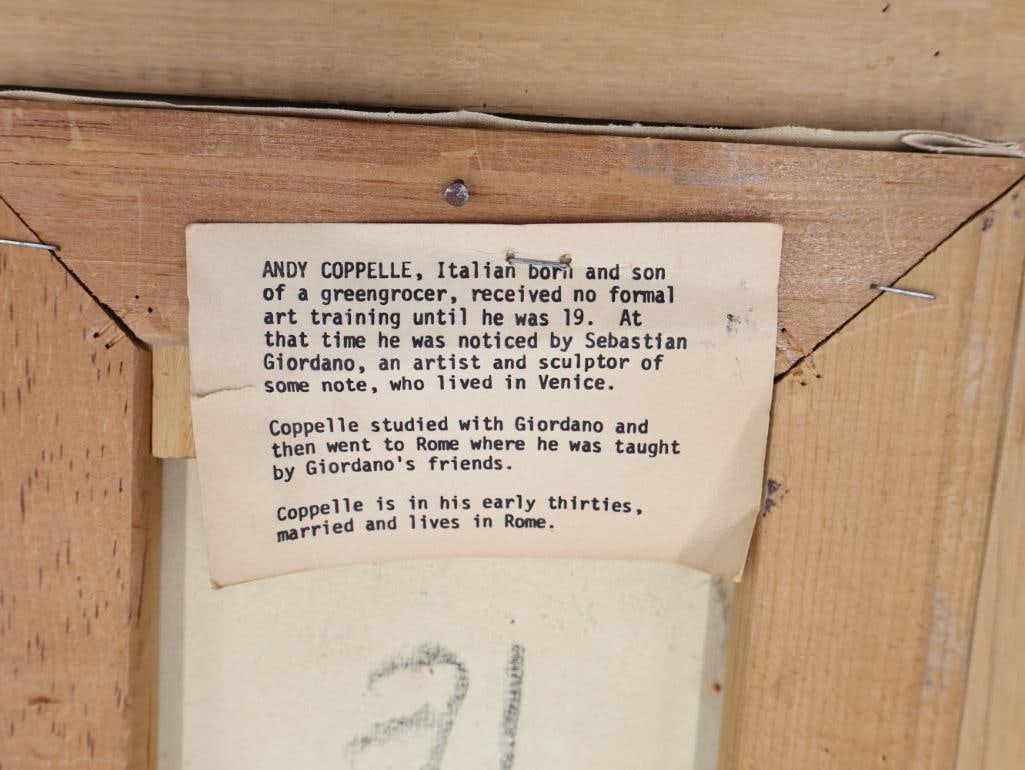 ANDY COPPELLE, Italian born and son
of a greengrocer, received no formal
art training until he was 19.  At
that time he was noticed by Sebastian
Giordano, an artist and sculptor of
some note, who lived in Venice.
Coppelle studied with Giordano and
then went to Rome where he was taught
by Giordano's friends.
Coppelle is in his early thirties,
married and lives in Rome.